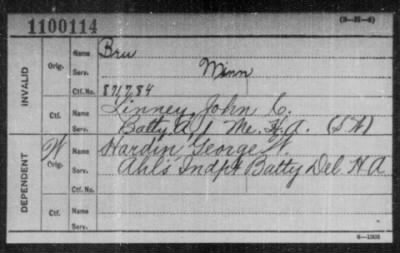 1100114
(3-21-4)
INVALID
Orig.
Name
Serv.
Minn
Ctf. No.
871784
Ctf.
Name
Linney, John C.
Serv.
Batty A, 1 Me. H.A. (S W)
DEPENDENT
W
Orig.
Name
Hardin, George W.
Serv.
Ahl's Indpt Batty Del H A
Ctf. No.
Ctf.
Name
Serv.